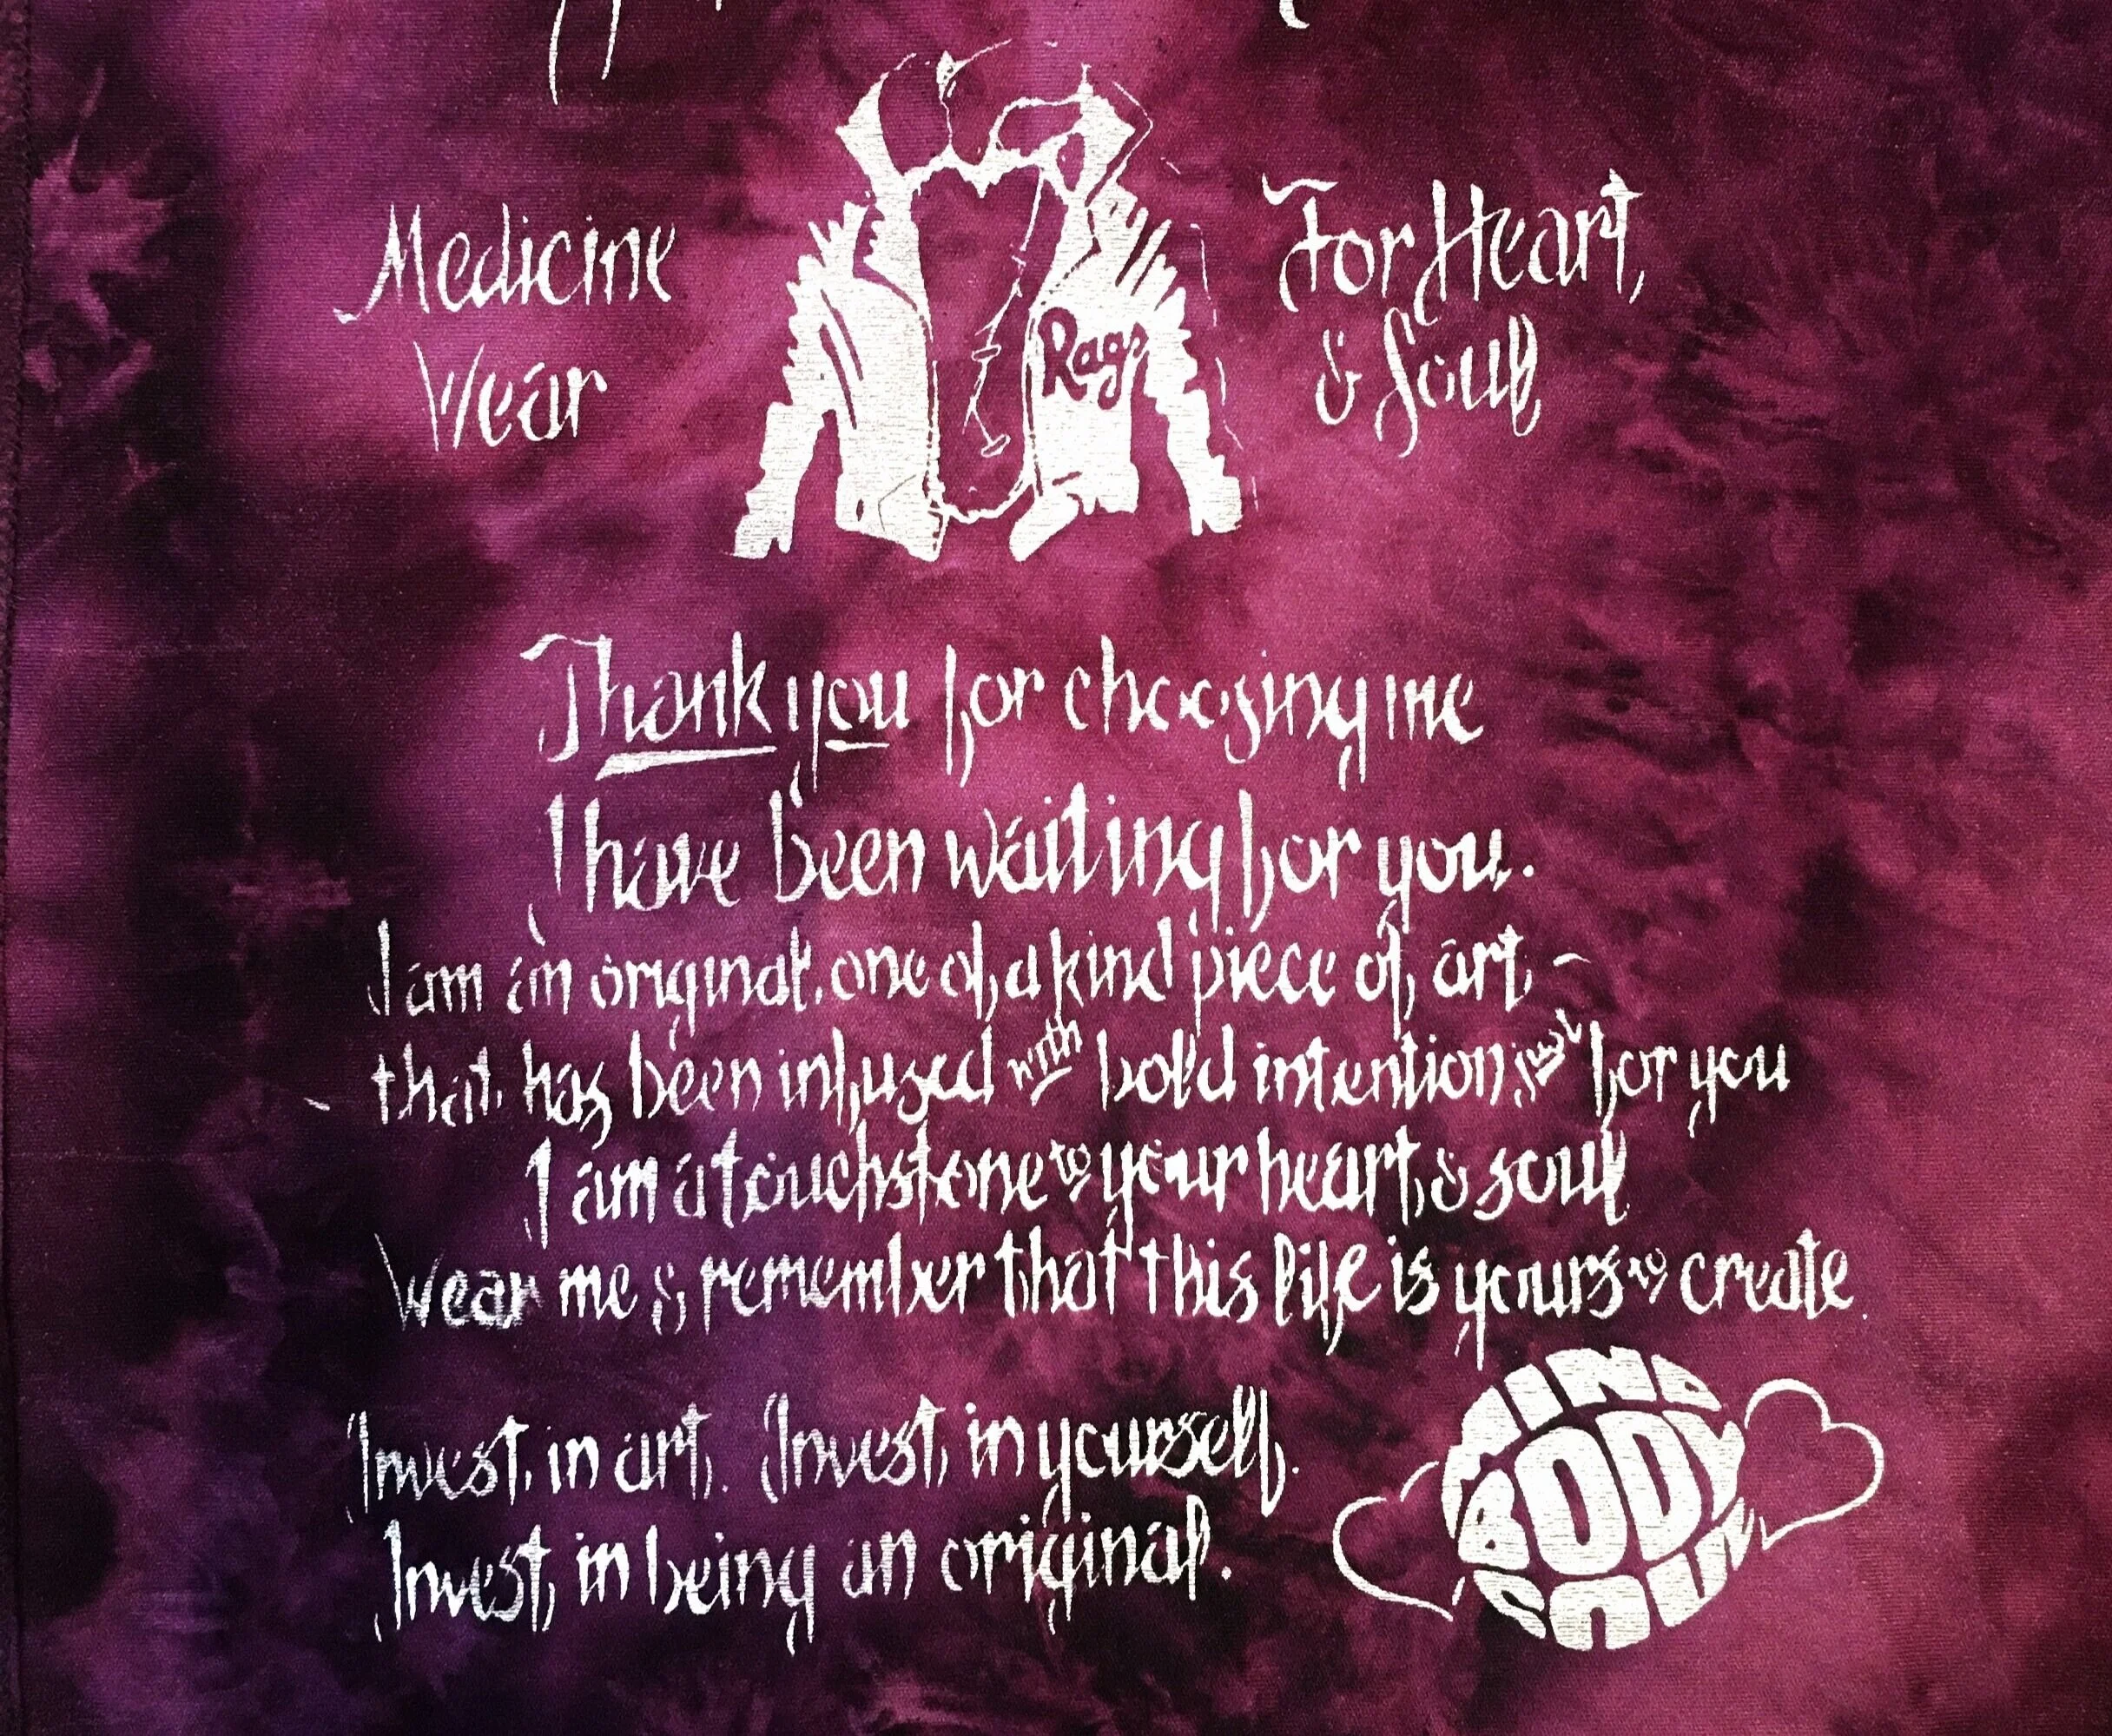 Medicine
Wear
For Heart,
& Soul
Rags
Thank you for choosing me
I have been waiting for you.
I am an original, one of a kind piece of art -
- that has been infused with bold intention just for you
I am a touchstone to your heart & soul
Wear me & remember that this life is yours to create.
Invest in art. Invest in yourself.
Invest in being an original.
MIND
BODY
SOUL